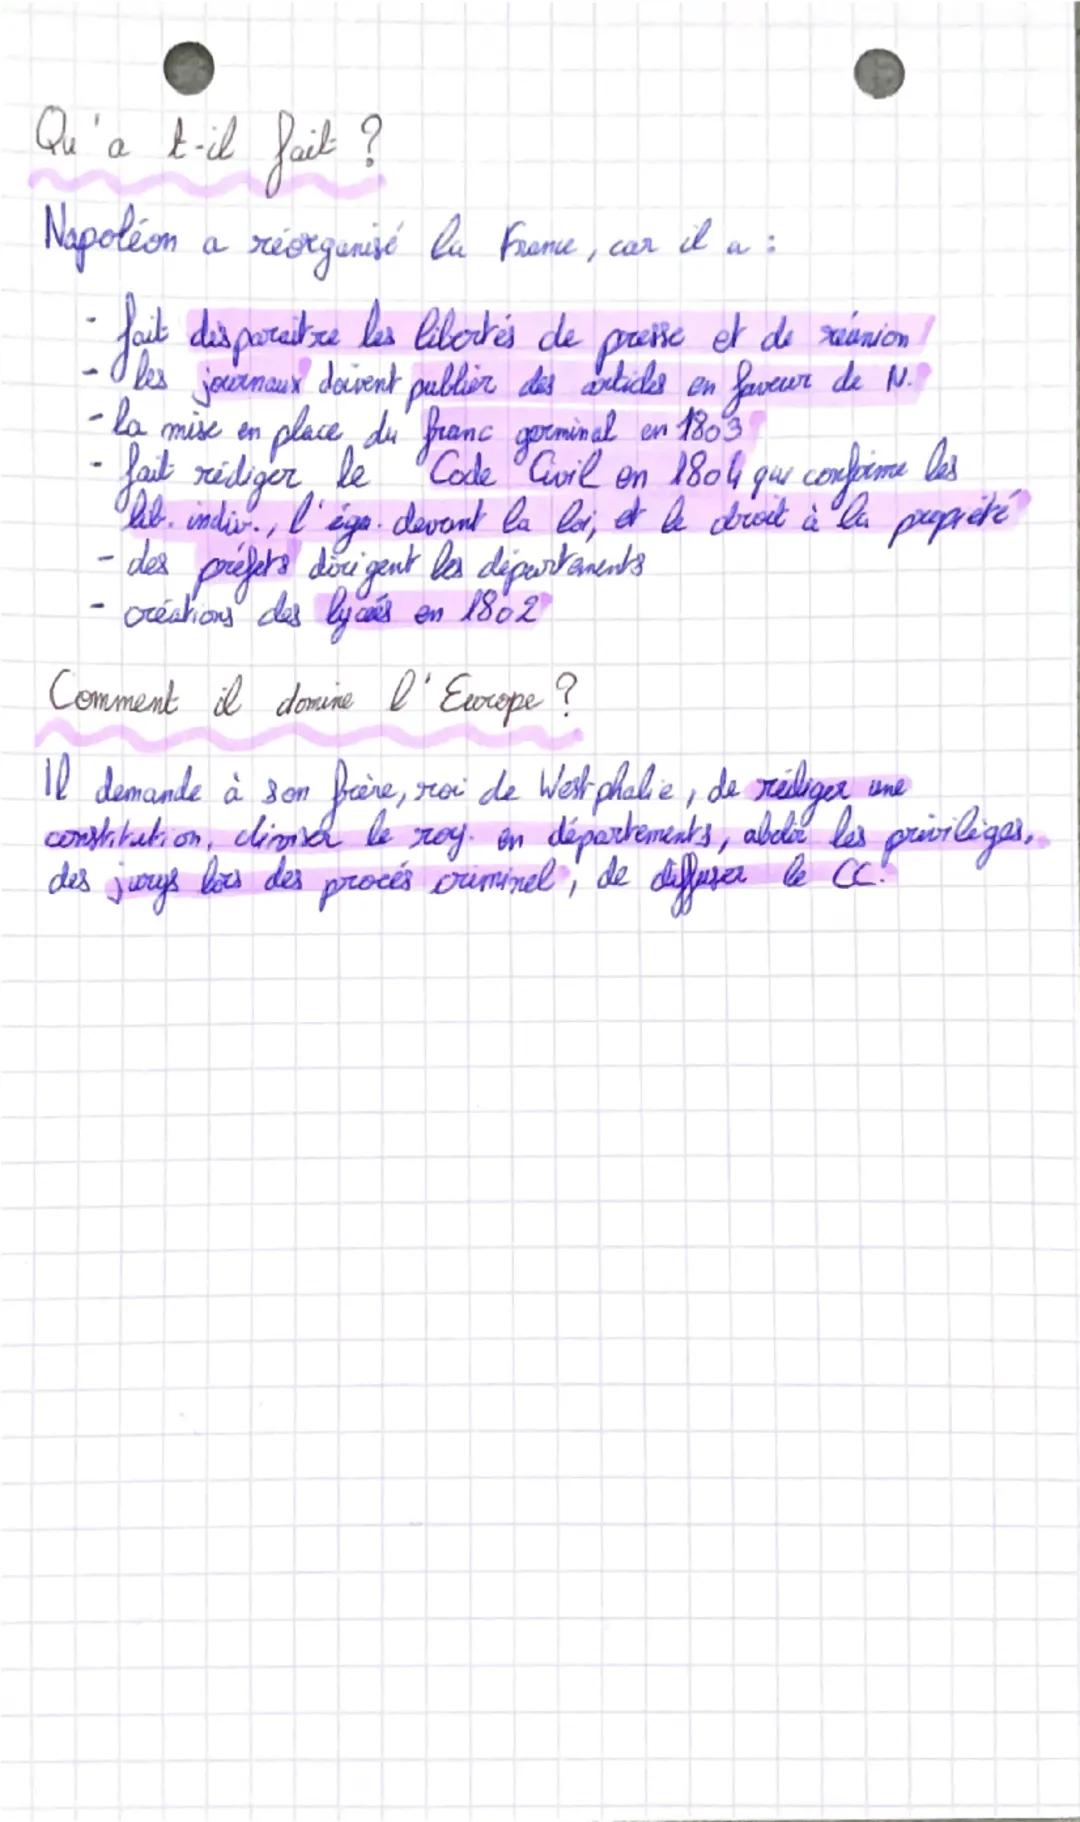 Qu'a t-il fait ?
Napoléon a réorganisé la France, car il a :
- fait disparaitre les libertés de presse et de réunion
- les journaux doivent publier des articles en faveur de N.
- la mise en place du franc germinal en 1803
- fait rédiger le Code Civil en 1804 qui confirme les
lib. indiv., l'éga. devant la loi, et le droit à la propriété
- des préfets dirigent les départements
- créations des lycées en 1802
Comment il domine l'Europe ?
Il demande à son frère, roi de Westphalie, de rédiger une
constitution, diviser le roy. en départements, abolir les privilèges,
des jurys lors des procés criminel, de diffuser le CC.